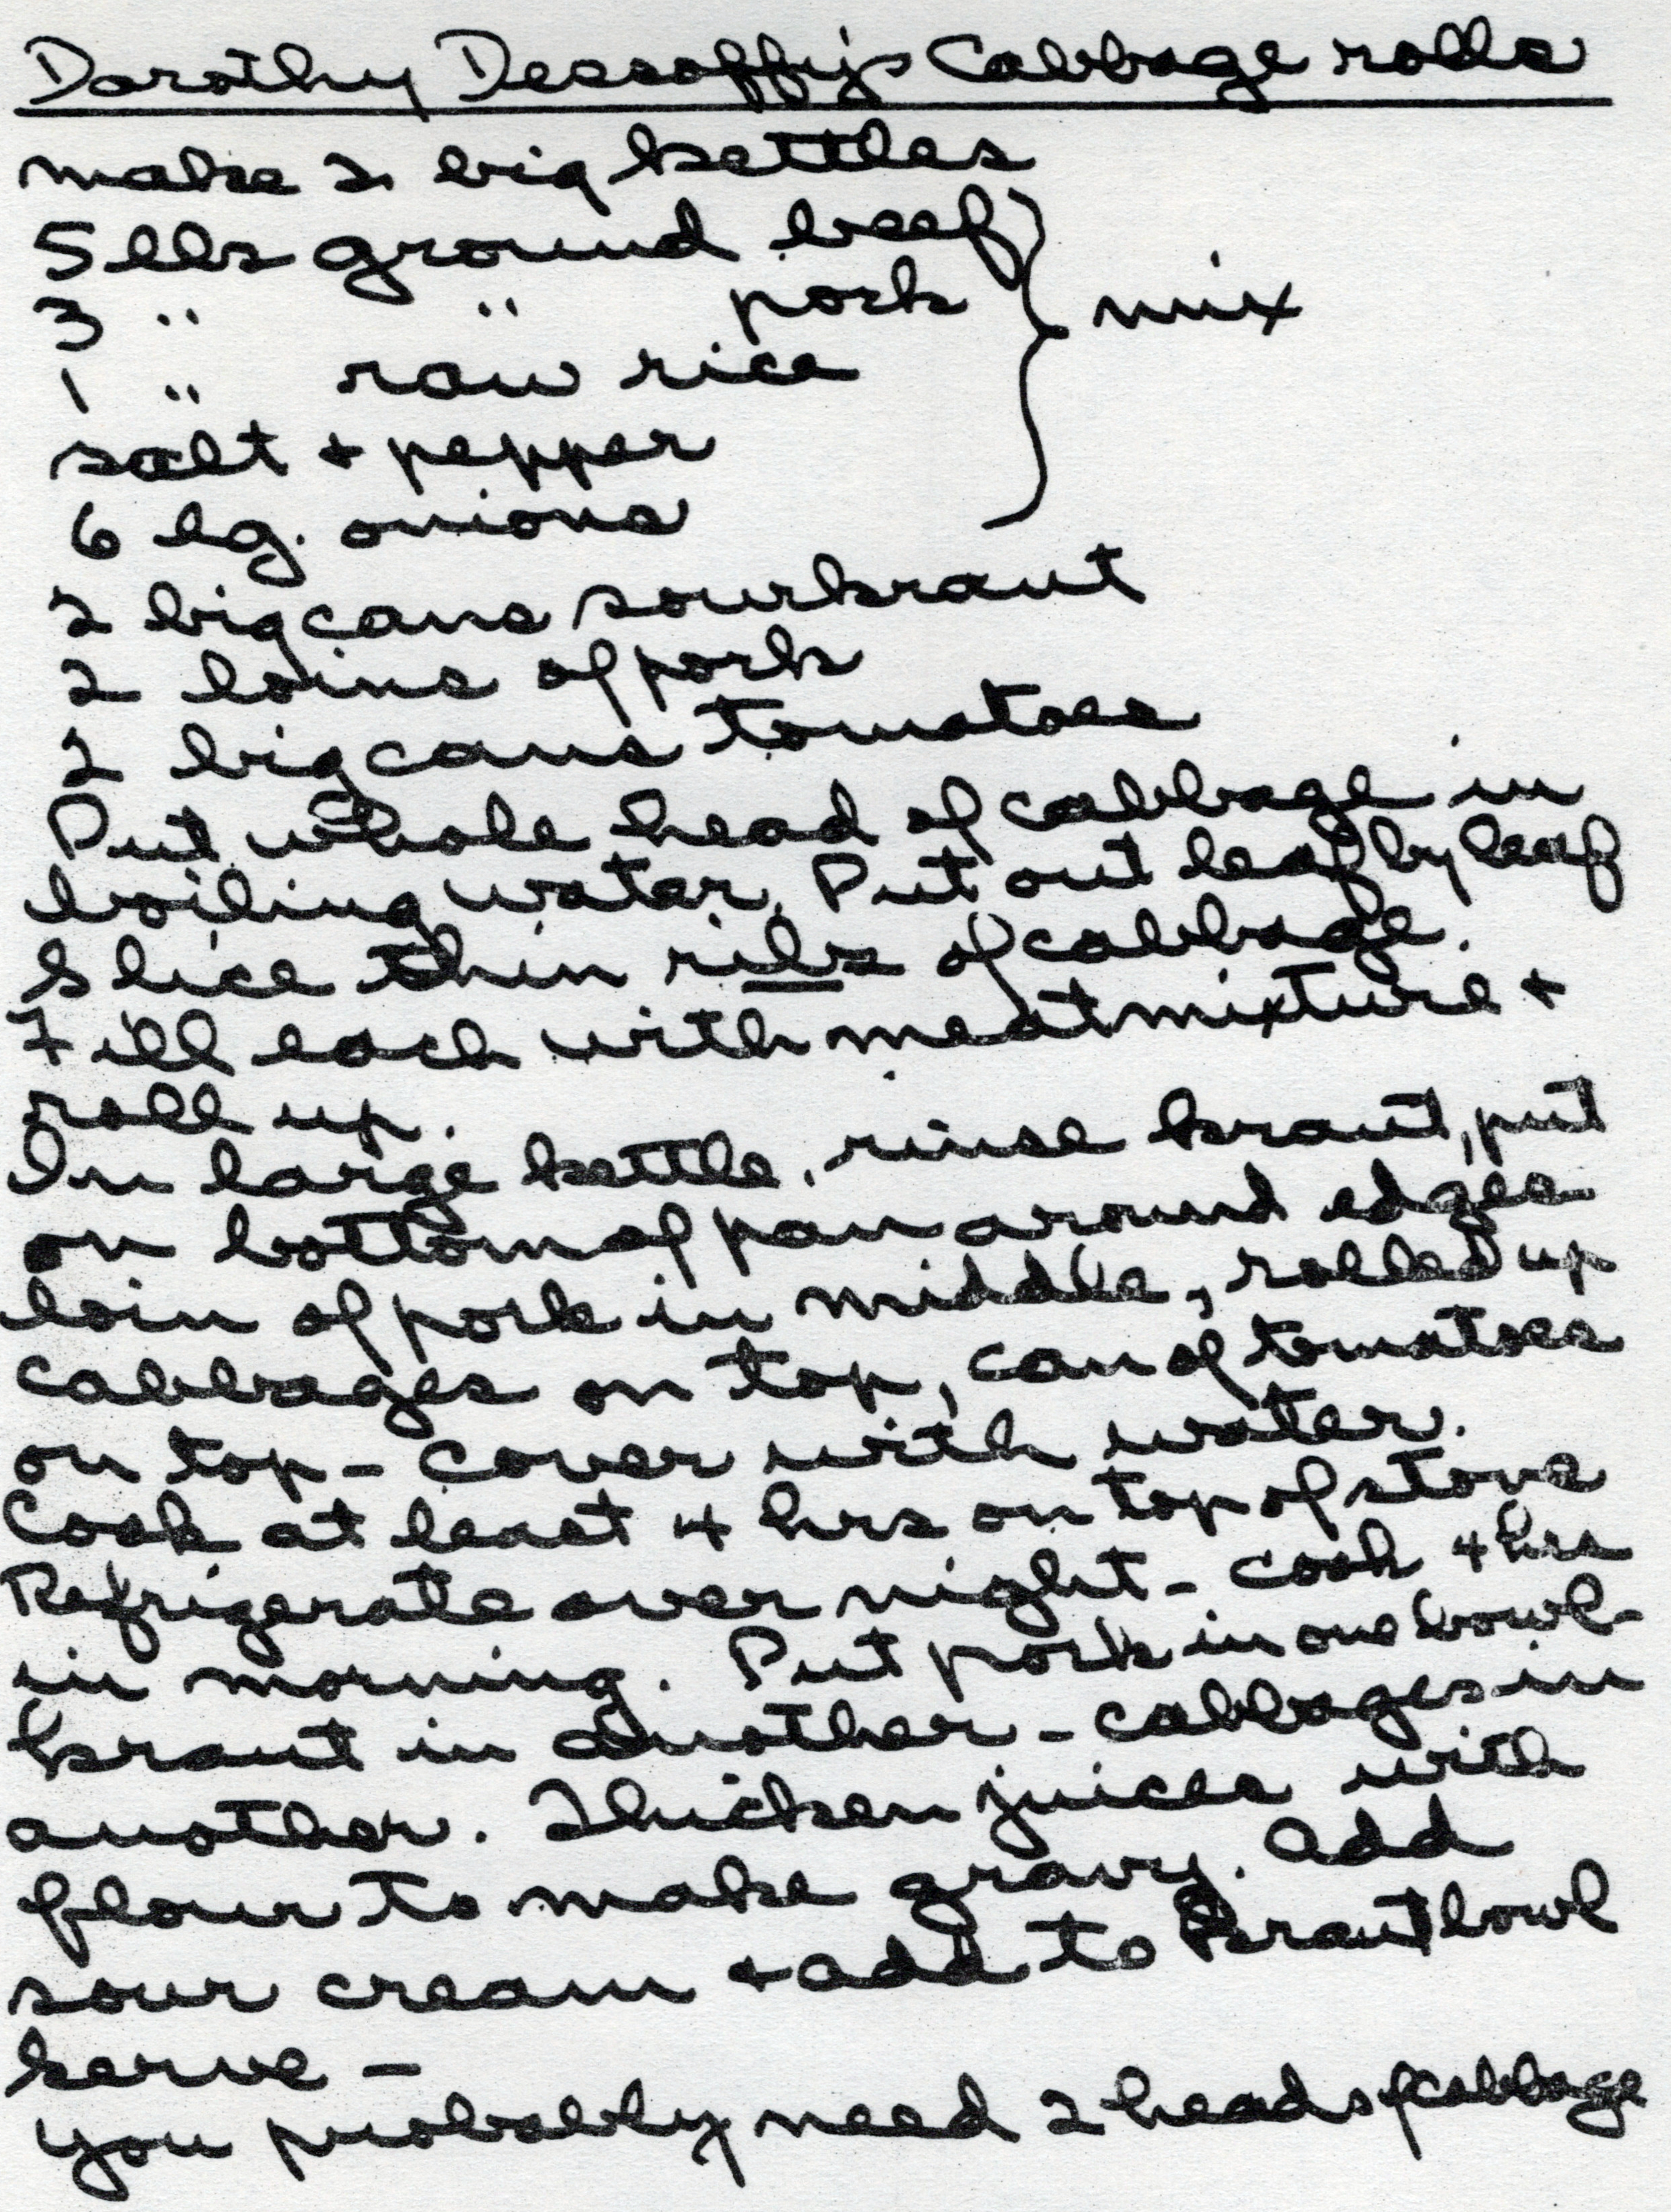 Dorothy Dessoffy's Cabbage rolls
make 2 big kettles
5 lbs ground beef
3 " " pork } mix
1 " raw rice
salt + pepper
6 lg. onions
2 big cans sourkraut
2 loins of pork
2 big cans tomatoes
Put whole head of cabbage in
boiling water. Put out leaf by leaf
Slice thin ribs of cabbage.
Fill each with meat mixture +
roll up.
In large kettle, rinse kraut, put
on bottom of pan around edges
loin of pork in middle, rolled up
cabbages on top, can of tomatoes
on top - cover with water.
Cook at least 4 hrs on top of stove
Refrigerate over night - cook 4 hrs
in morning. Put pork in one bowl -
kraut in another - cabbages in
another. Thicken juices with
flour to make gravy. Add
sour cream + add to kraut bowl
Serve -
you probably need 2 heads of cabbage